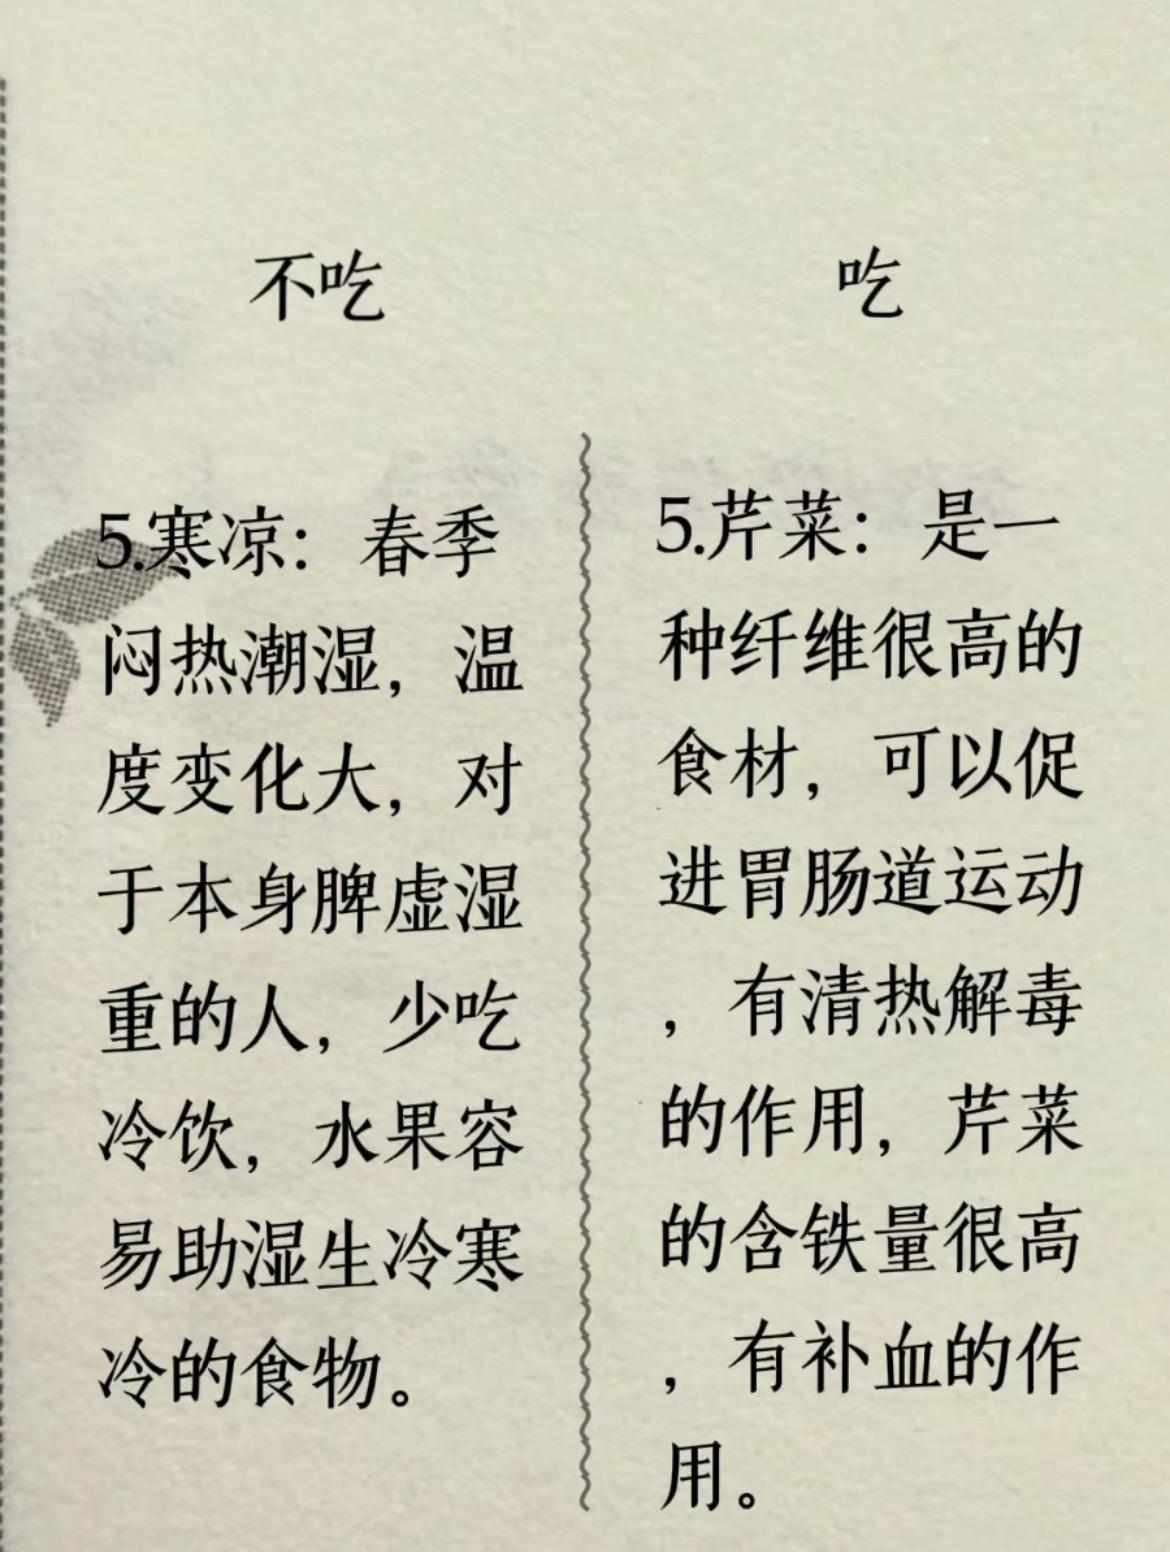 不吃
5.寒凉：春季
闷热潮湿，温
度变化大，对
于本身脾虚湿
重的人，少吃
冷饮，水果容
易助湿生冷寒
冷的食物。
吃
5.芹菜：是一
种纤维很高的
食材，可以促
进胃肠道运动
，有清热解毒
的作用，芹菜
的含铁量很高
，有补血的作
用。